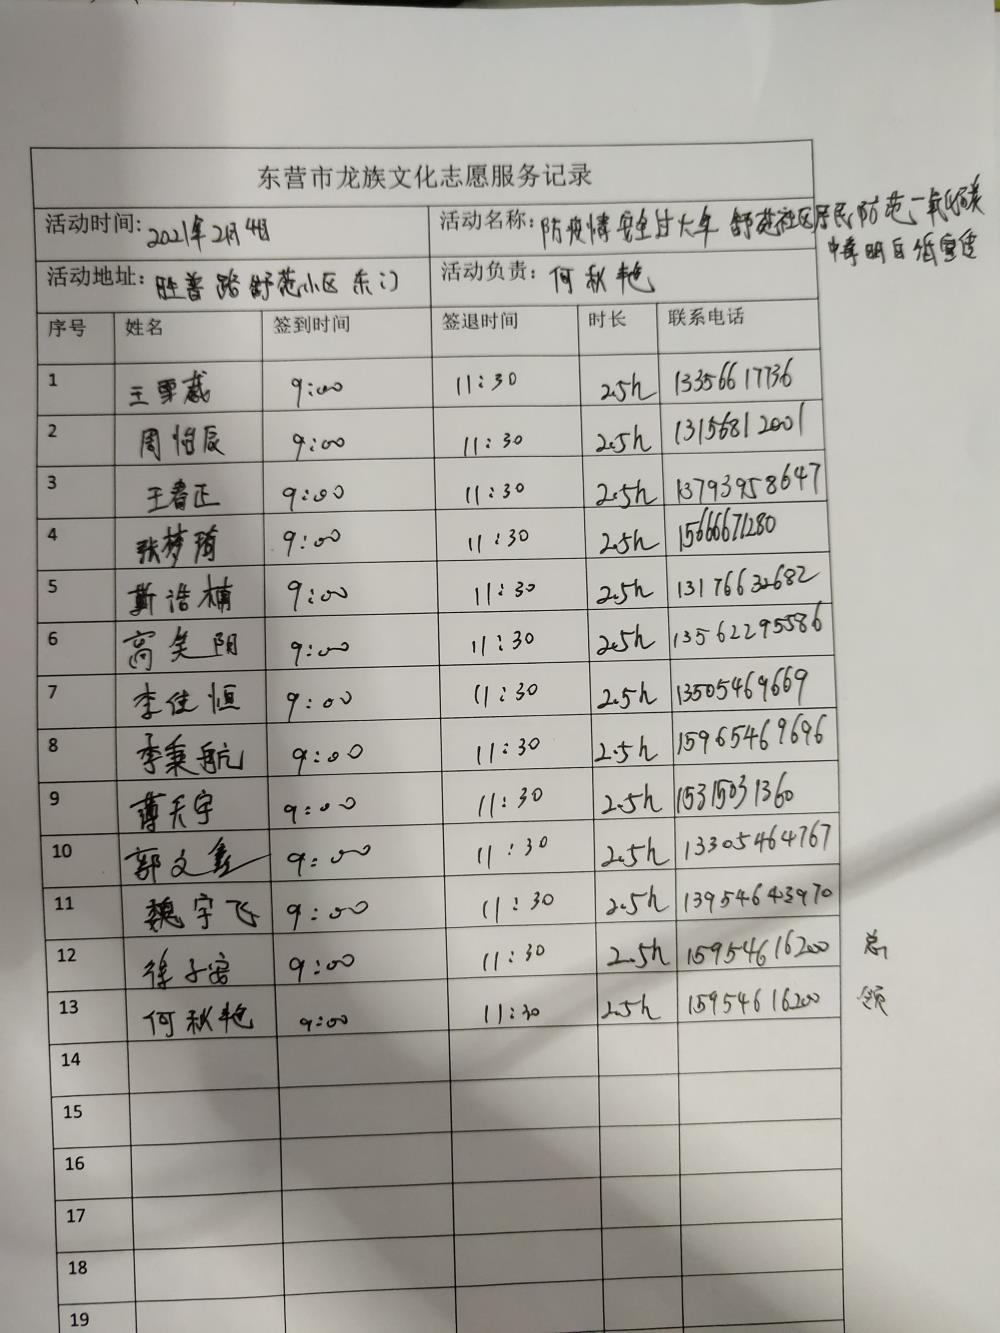 东营市龙族文化志愿服务记录
活动时间: 2021年2月4日 活动名称: 防疫情安全过大年 舒苑社区居民防范一氧化碳
中毒明白纸宣传
活动地址: 胜普路舒苑小区东门 活动负责: 何秋艳
序号 姓名 签到时间 签退时间 时长 联系电话
1 王雯葳 9:00 11:30 2.5h 13356617736
2 周怡辰 9:00 11:30 2.5h 13156812001
3 王春正 9:00 11:30 2.5h 13793958647
4 张梦琦 9:00 11:30 2.5h 15666671280
5 靳浩楠 9:00 11:30 2.5h 13176632682
6 高笑阳 9:00 11:30 2.5h 13562295586
7 李佳恒 9:00 11:30 2.5h 13505469669
8 李秉航 9:00 11:30 2.5h 15965469696
9 薄天宇 9:00 11:30 2.5h 15315031360
10 郭文鑫 9:00 11:30 2.5h 13305464767
11 魏宇飞 9:00 11:30 2.5h 13954643970
12 徐子 9:00 11:30 2.5h 15954616200 总
13 何秋艳 9:00 11:30 2.5h 15954616200 领
14
15
16
17
18
19